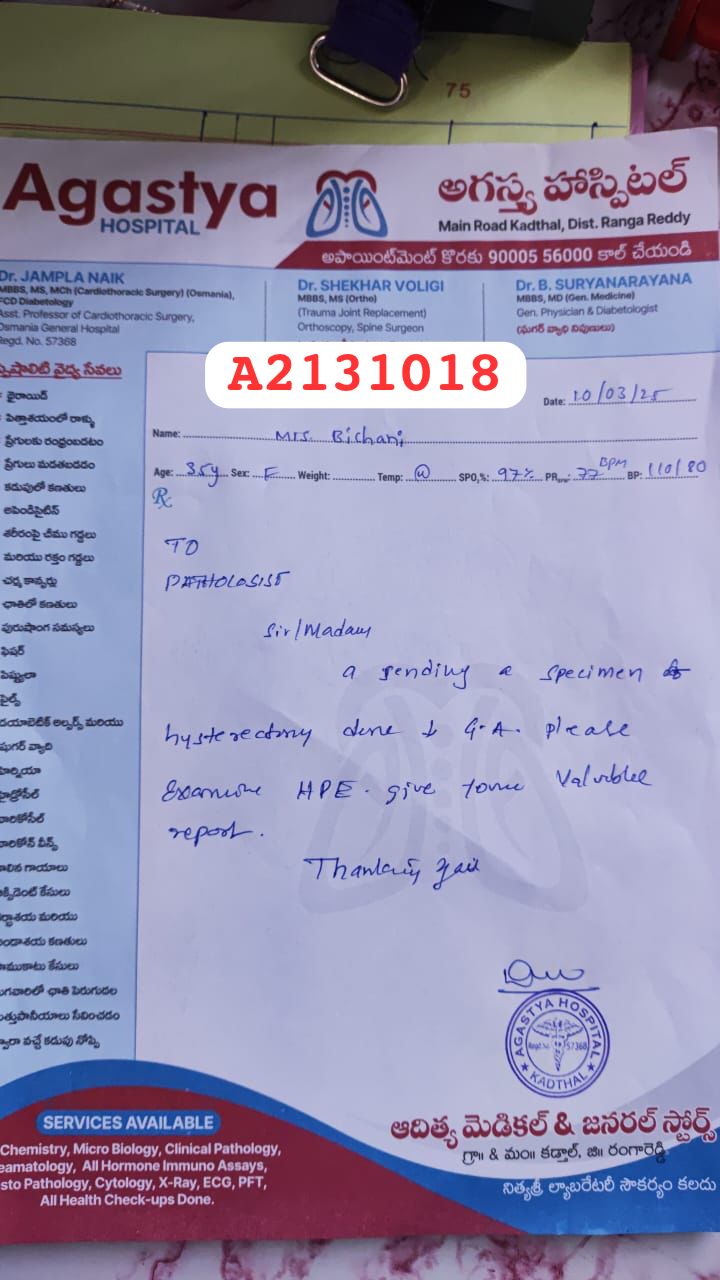 75
Agastya
HOSPITAL
అగస్త్య హాస్పిటల్
Main Road Kadthal, Dist. Ranga Reddy
అపాయింట్‌మెంట్ కొరకు 90005 56000 కాల్ చేయండి
Dr. JAMPLA NAIK
MBBS, MS, MCh (Cardiothoracic Surgery) (Osmania),
FCD Diabetology
Asst. Professor of Cardiothoracic Surgery,
Osmania General Hospital
Regd. No. 57368
Dr. SHEKHAR VOLIGI
MBBS, MS (Ortho)
(Trauma Joint Replacement)
Orthoscopy, Spine Surgeon
Dr. B. SURYANARAYANA
MBBS, MD (Gen. Medicine)
Gen. Physician & Diabetologist
(షుగర్ వ్యాధి నిపుణులు)
A2131018
Date: 10/03/25
Name: Mrs. Bichani
Age: 35y Sex: F Weight: Temp: @ SPO2%: 97% PR: 77 BPM BP: 110/80
Rx
TO
PATHOLOGIST
Sir/Madam
a sending a specimen
hysterectomy done ↓ G.A. please
Examine HPE. give valuble
report.
Thanking
వైద్య సేవలు
థైరాయిడ్
పిత్తాశయంలో రాళ్ళు
ప్రేగులకు రంధ్రంపడటం
ప్రేగులు మడతబడడం
కడుపులో కణతులు
అపెండిసైటిస్
శరీరంపై చీము గడ్డలు
మరియు రక్తం గడ్డలు
చర్మ కాన్సర్లు
ఛాతిలో కణతులు
పురుషాంగ సమస్యలు
ఫిషర్
అల్సర్స్ మరియు
షుగర్ వ్యాధి
హెర్నియా
హైడ్రోసిల్
గాయాలు
కేసులు
మరియు
కణతులు
పాముకాటు కేసులు
ఛాతి పెరుగుదల
సేవించడం
ద్వారా వచ్చే కడుపు నొప్పి
AGASTYA HOSPITAL
Regd. No. 57368
KADTHAL
SERVICES AVAILABLE
Chemistry, Micro Biology, Clinical Pathology,
eamatology, All Hormone Immuno Assays,
sto Pathology, Cytology, X-Ray, ECG, PFT,
All Health Check-ups Done.
ఆదిత్య మెడికల్ & జనరల్ స్టోర్స్
గ్రా॥ & మం॥ కడ్తాల్, జి॥ రంగారెడ్డి
నిత్యశ్రీ ల్యాబరేటరీ సౌకర్యం కలదు